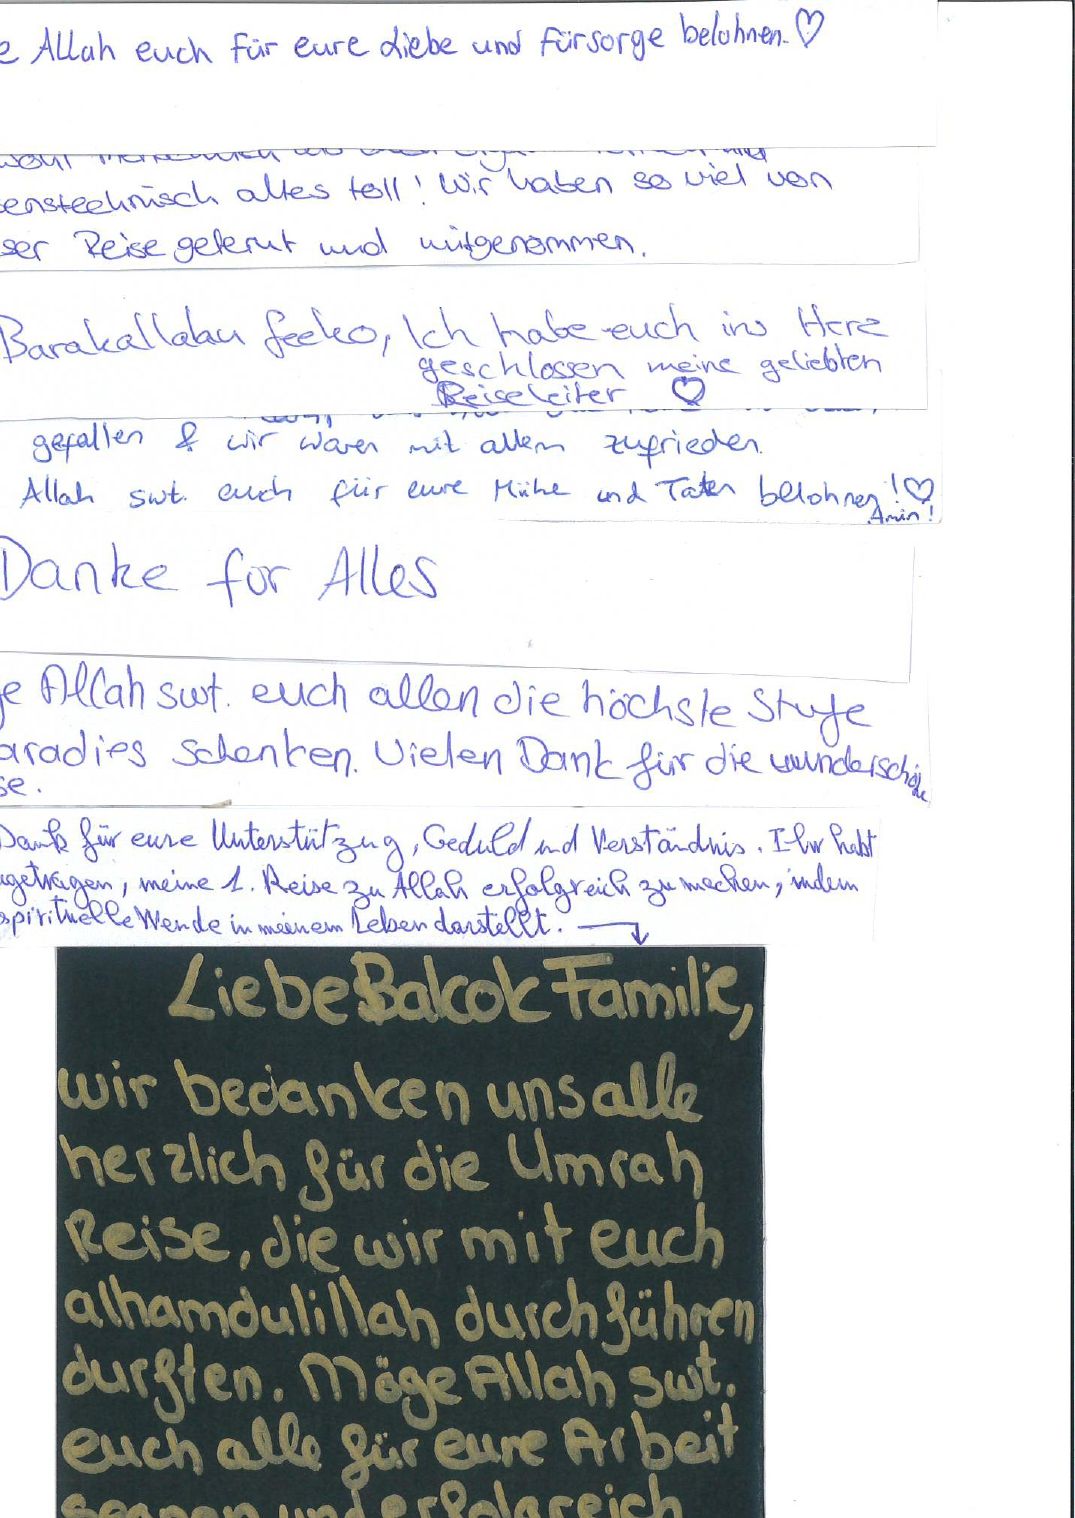 e Allah euch für eure Liebe und Fürsorge belohnen. ♡
enstechnisch alles toll! Wir haben so viel von
ser Reise gelernt und mitgenommen.
Barakallahu feeko, Ich habe euch ins Herz
geschlossen meine geliebten
Reiseleiter ♡
gefallen & wir waren mit allem zufrieden.
Allah swt. euch für eure Mühe und Taten belohnen! ♡
Amin!
Danke for Alles
ge Allah swt. euch allen die höchste Stufe
aradies schenken. Vielen Dank für die wunderschöne
se.
Dank für eure Unterstützug, Geduld und Verständnis. Ihr habt
getragen, meine 1. Reise zu Allah erfolgreich zu machen, indem
spirituelle Wende in meinem Leben darstellt. →
Liebe Balcok Familie,
wir bedanken uns alle
herzlich für die Umrah
Reise, die wir mit euch
alhamdulillah durchführen
durften. Möge Allah swt.
euch alle für eure Arbeit
segnen und erfolgreich